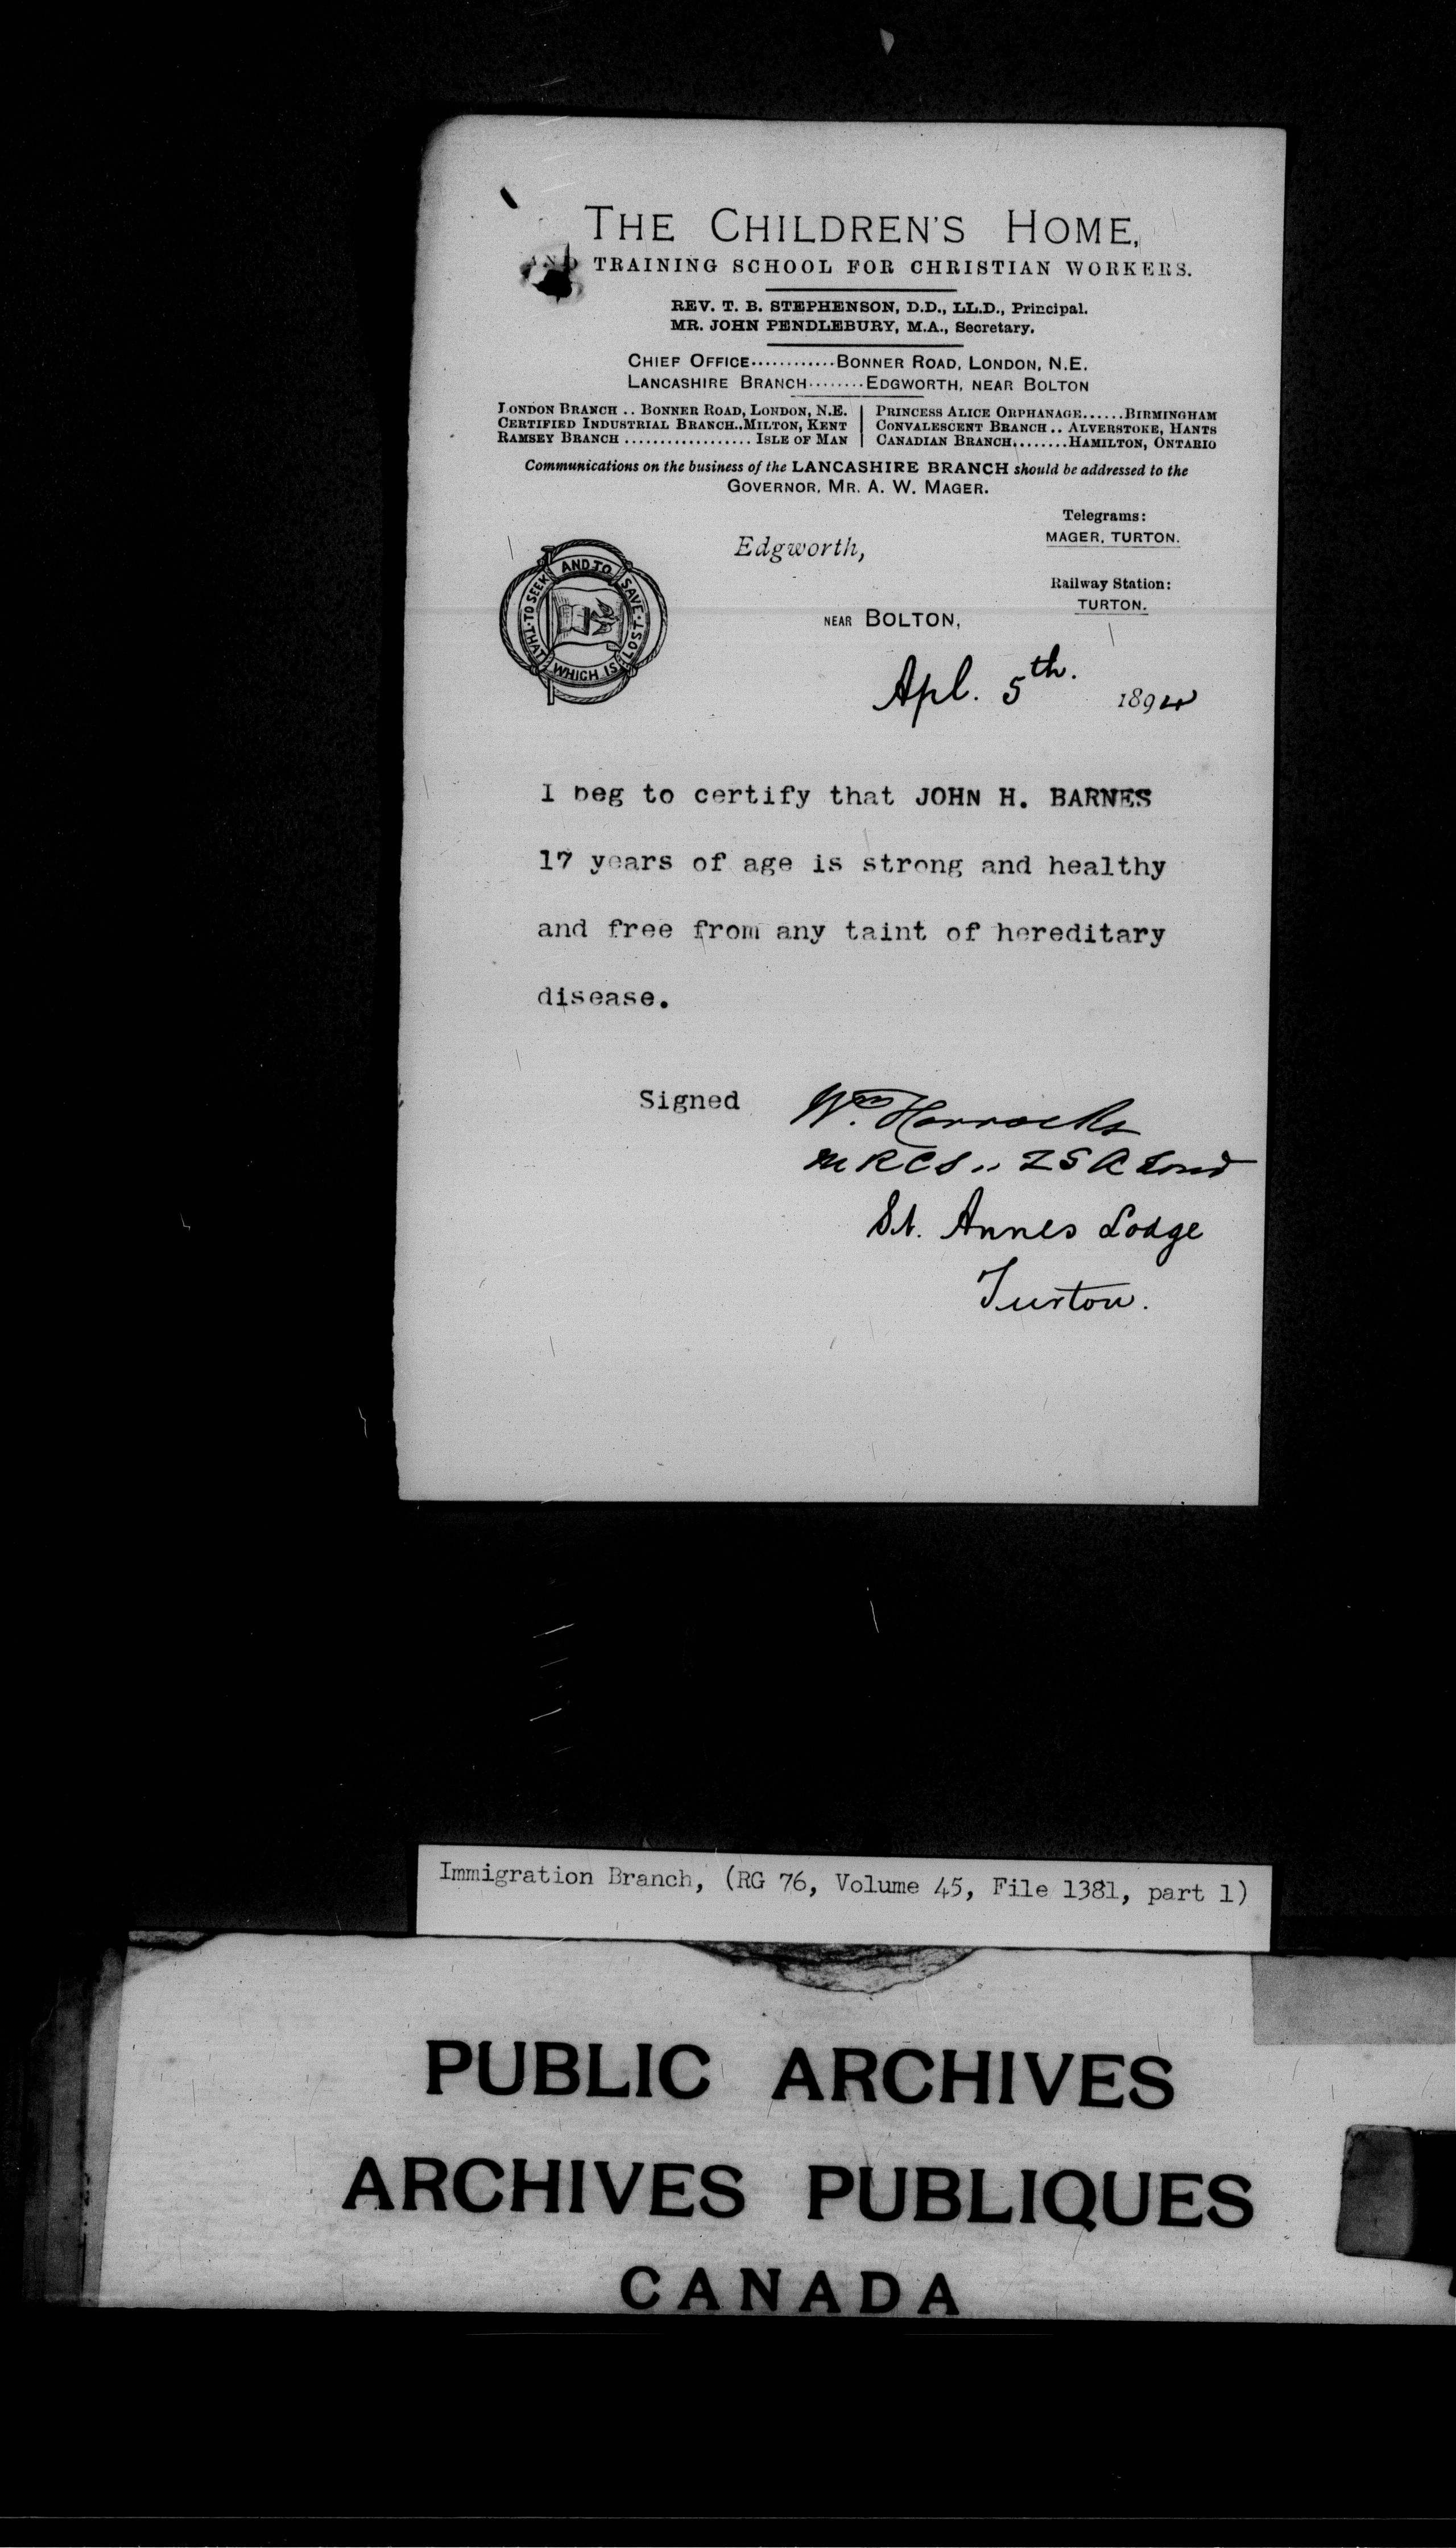 THE CHILDREN'S HOME,
AND TRAINING SCHOOL FOR CHRISTIAN WORKERS.
REV. T. B. STEPHENSON, D.D., LL.D., Principal.
MR. JOHN PENDLEBURY, M.A., Secretary.
CHIEF OFFICE............BONNER ROAD, LONDON, N.E.
LANCASHIRE BRANCH........EDGWORTH, NEAR BOLTON
LONDON BRANCH .. BONNER ROAD, LONDON, N.E.
CERTIFIED INDUSTRIAL BRANCH..MILTON, KENT
RAMSEY BRANCH .................. ISLE OF MAN
PRINCESS ALICE ORPHANAGE......BIRMINGHAM
CONVALESCENT BRANCH .. ALVERSTOKE, HANTS
CANADIAN BRANCH........HAMILTON, ONTARIO
Communications on the business of the LANCASHIRE BRANCH should be addressed to the
GOVERNOR, MR. A. W. MAGER.
Telegrams:
MAGER, TURTON.
Railway Station:
TURTON.
TO SEEK AND TO SAVE THAT WHICH IS LOST
Edgworth,
NEAR BOLTON,
Apl. 5th. 1894
I beg to certify that JOHN H. BARNES
17 years of age is strong and healthy
and free from any taint of hereditary
disease.
Signed Wm. Horrocks
MRCS., LSA Lond
St. Annes Lodge
Turton.
Immigration Branch, (RG 76, Volume 45, File 1381, part 1)
PUBLIC ARCHIVES
ARCHIVES PUBLIQUES
CANADA